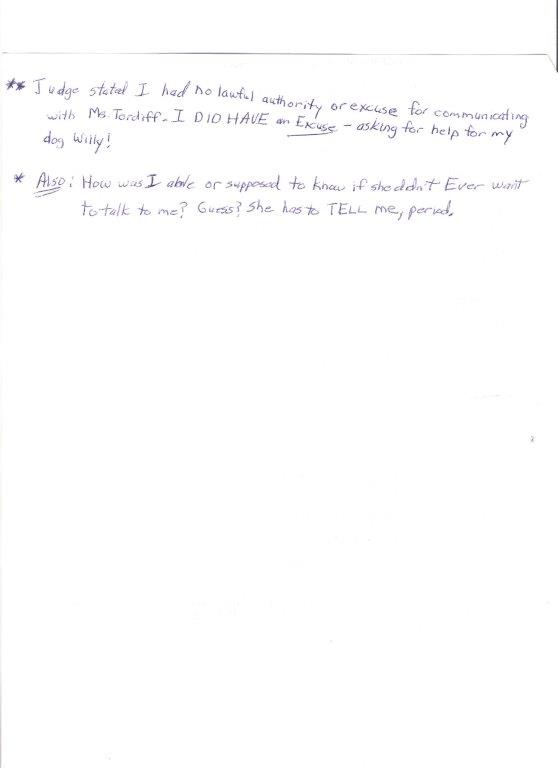 ** Judge stated I had no lawful authority or excuse for communicating
with Ms. Tordiff. I DID HAVE an Excuse - asking for help for my
dog Willy!
* Also: How was I able or supposed to know if she didn't Ever want
to talk to me? Guess? She has to TELL me, period.